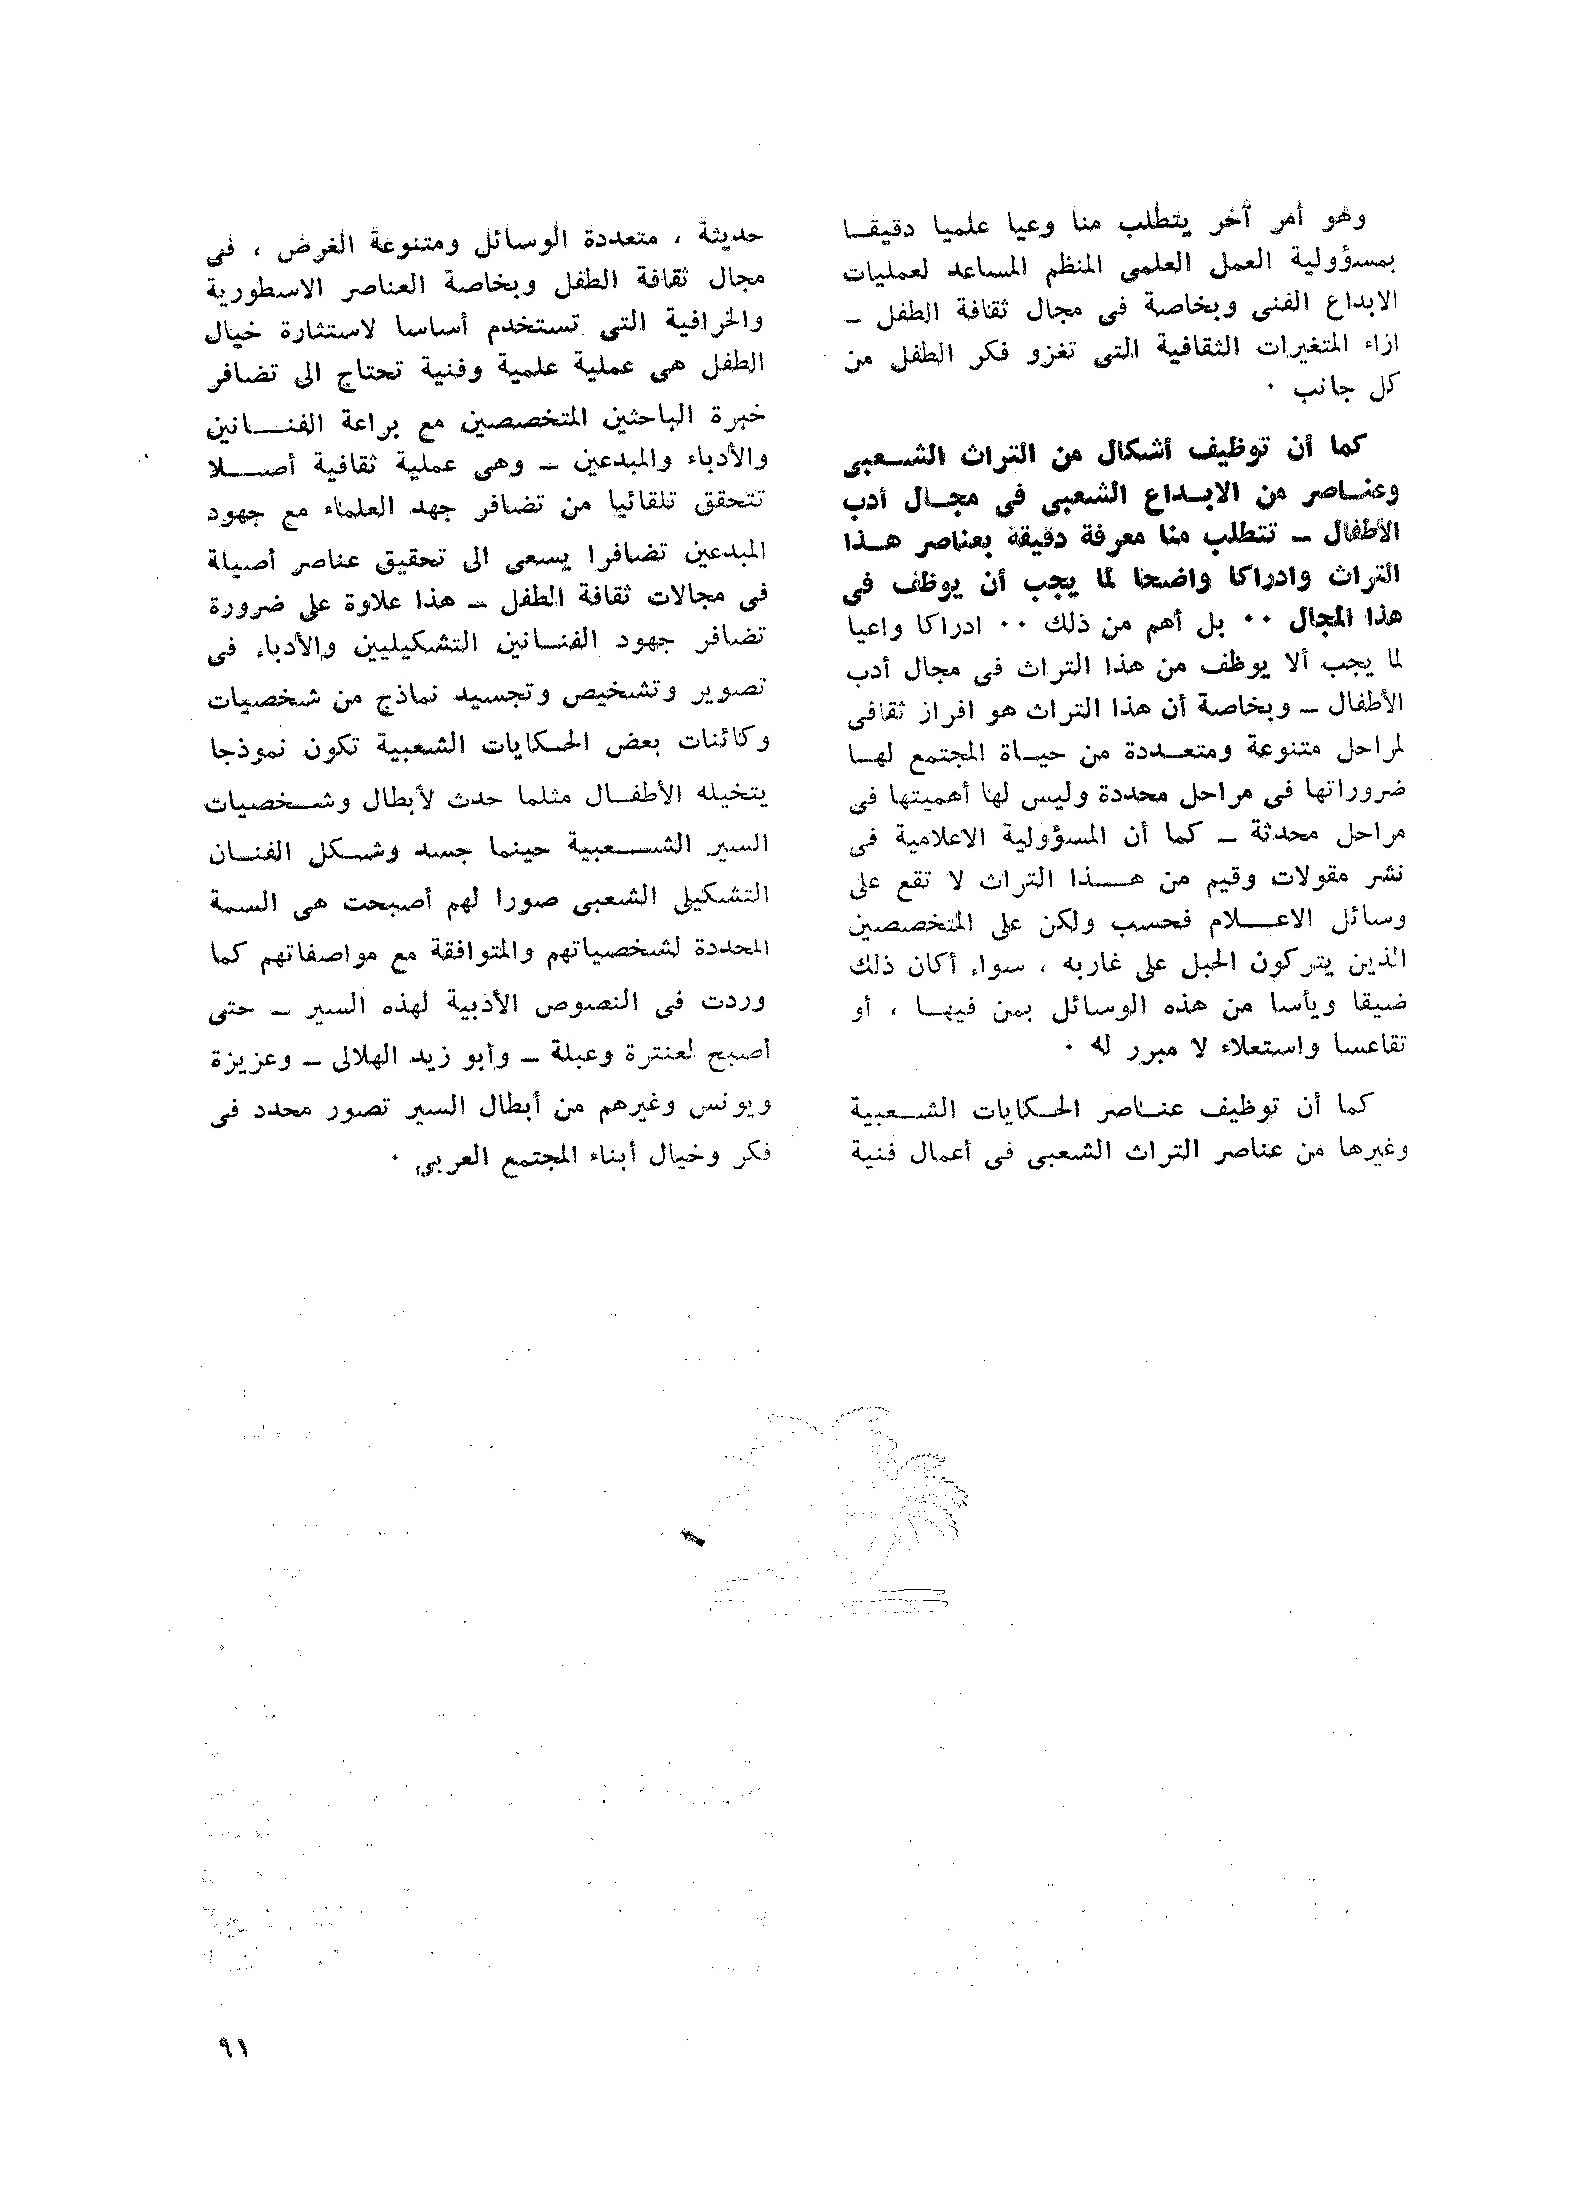 وهو أمر آخر يتطلب منا وعيا علميا دقيقـا
بمسؤولية العمل العلمى المنظم المساعد لعمليات
الابداع الفنى وبخاصة فى مجال ثقافة الطفل –
ازاء المتغيرات الثقافية التى تغزو فكر الطفل من
كل جانب ٠
كما أن توظيف أشكال من التراث الشـعبى
وعنـاصر من الابـداع الشعبى فى مجـال أدب
الأطفال – تتطلب منا معرفة دقيقة بعناصر هـذا
التراث وادراكا واضحا لما يجب أن يوظف فى
هذا المجال ٠٠ بل أهم من ذلك ٠٠ ادراكا واعيا
لما يجب ألا يوظف من هذا التراث فى مجال أدب
الأطفال – وبخاصة أن هذا التراث هو افراز ثقافى
لمراحل متنوعة ومتعـددة من حيـاة المجتمع لهـا
ضروراتها فى مراحل محددة وليس لها أهميتها فى
مراحل محدثة – كما أن المسؤولية الاعلامية فى
نشر مقولات وقيم من هـــذا التراث لا تقع على
وسائل الاعـــلام فحسب ولكن على المتخصصين
الذين يتركون الحبل على غاربه ، سواء أكان ذلك
ضيقا ويأسا من هذه الوسائل بمن فيهـا ، أو
تقاعسا واستعلاء لا مبرر له ٠
كما أن توظيف عنـاصر الحـكايات الشـعبية
وغيرها من عناصر التراث الشعبى فى أعمال فنية
حديثة ، متعددة الوسائل ومتنوعة الغرض ، فى
مجال ثقافة الطفل وبخاصة العناصر الاسطورية
والخرافية التى تستخدم أساسا لاستثارة خيال
الطفل هى عملية علمية وفنية تحتاج الى تضافر
خبرة الباحثين المتخصصين مع براعة الفنـــانين
والأدباء والمبدعين – وهى عملية ثقافية أصـــلا
تتحقق تلقائيا من تضافر جهد العلماء مع جهود
المبدعين تضافرا يسعى الى تحقيق عناصر أصيلة
فى مجالات ثقافة الطفل – هذا علاوة على ضرورة
تضافر جهود الفنـانين التشكيليين والأدباء فى
تصوير وتشخيص وتجسيد نماذج من شخصيات
وكائنات بعض الحـكايات الشعبية تكون نموذجا
يتخيله الأطفـال مثلما حدث لأبطال وشـخصيات
السير الشـــعبية حينما جسد وشـكل الفنـان
التشكيلى الشعبى صورا لهم أصبحت هى السمة
المحددة لشخصياتهم والمتوافقة مع مواصفاتهم كما
وردت فى النصوص الأدبية لهذه السير – حتى
أصبح لعنترة وعبلة – وأبو زيد الهلالى – وعزيزة
ويونس وغيرهم من أبطال السير تصور محدد فى
فكر وخيال أبناء المجتمع العربى ٠
٩١